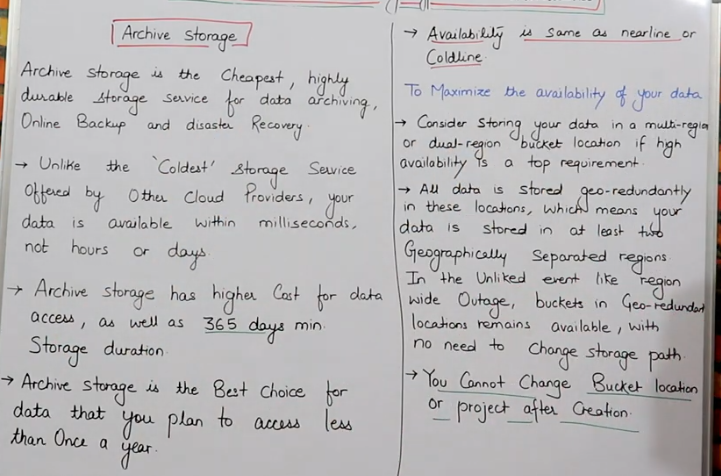 Archive Storage
Archive Storage is the Cheapest, highly
durable Storage Service for data archiving,
Online Backup and disaster Recovery.
→ Unlike the 'Coldest' Storage Service
Offered by Other Cloud Providers, your
data is available within milliseconds,
not hours or days.
→ Archive Storage has higher Cost for data
access, as well as 365 days min.
Storage duration.
→ Archive Storage is the Best Choice for
data that you plan to access less
than Once a year.
→ Availability is same as nearline or
Coldline
To Maximize the availability of your data
→ Consider Storing your data in a multi-region
or dual-region bucket location if high
availability is a top requirement.
→ All data is stored geo-redundantly
in these locations, which means your
data is stored in at least two
Geographically Separated regions.
In the Unliked event like region
wide Outage, buckets in Geo-redundant
locations remains available, with
no need to Change storage path.
→ You Cannot Change Bucket location
or project after Creation.